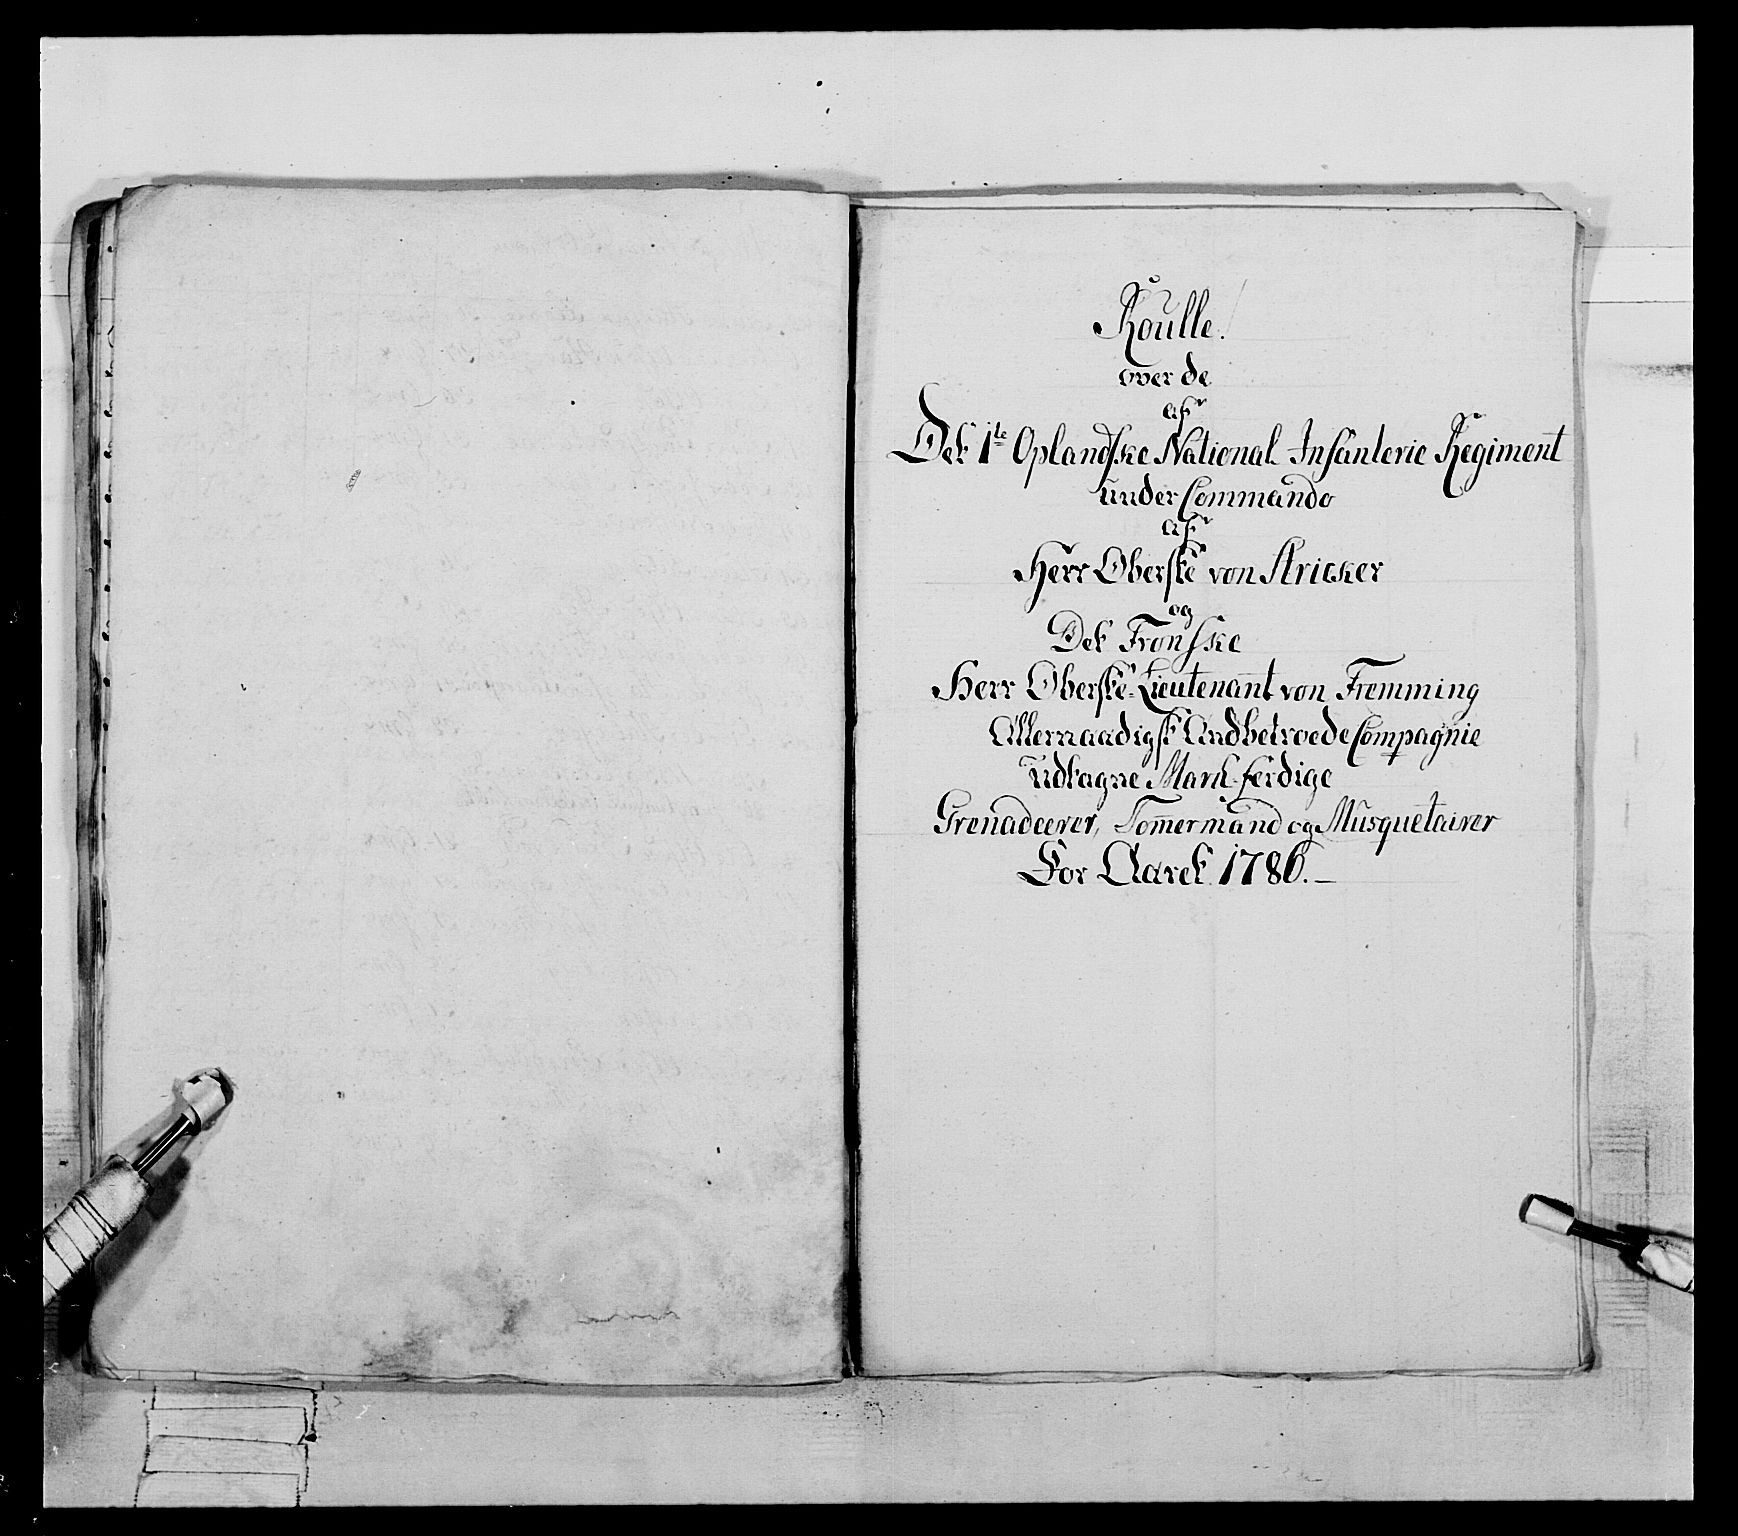 Roulle.
over de
af
Det 1te Oplandske National Infanterie Regiment
under Commando
af
Herr Oberste von Stricker
og
Det Fronske
Herr Oberste-Lieutenant von Fremming
Allernaadigst Andbetroede Compagnie
udtagne March-ferdige
Grenadeerer, Tom̄ermænd og Musquetairer
For Aaret 1786.